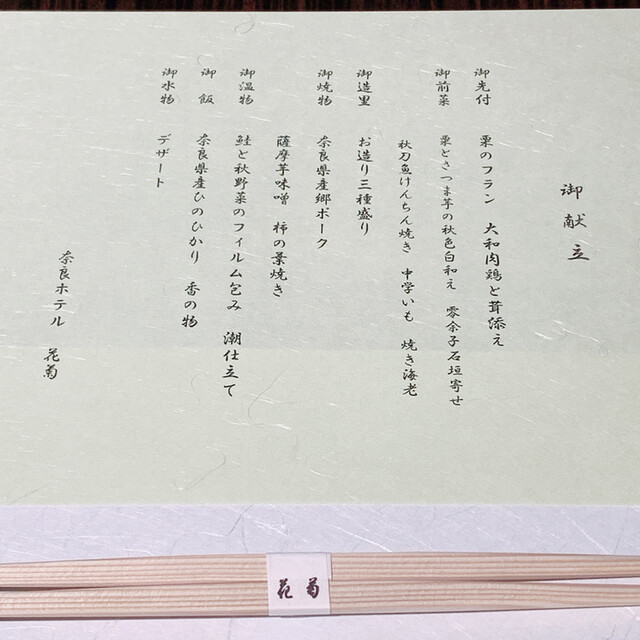 御献立
御先付 栗のフラン 大和肉鶏と茸添え
御前菜 栗とさつま芋の秋色白和え 零余子石垣寄せ
秋刀魚けんちん焼き 中学いも 焼き海老
御造里 お造り三種盛り
御焼物 奈良県産郷ポーク
薩摩芋味噌 柿の葉焼き
御温物 鮭と秋野菜のフィルム包み 潮仕立て
御飯 奈良県産ひのひかり 香の物
御水物 デザート
奈良ホテル 花菊
花菊